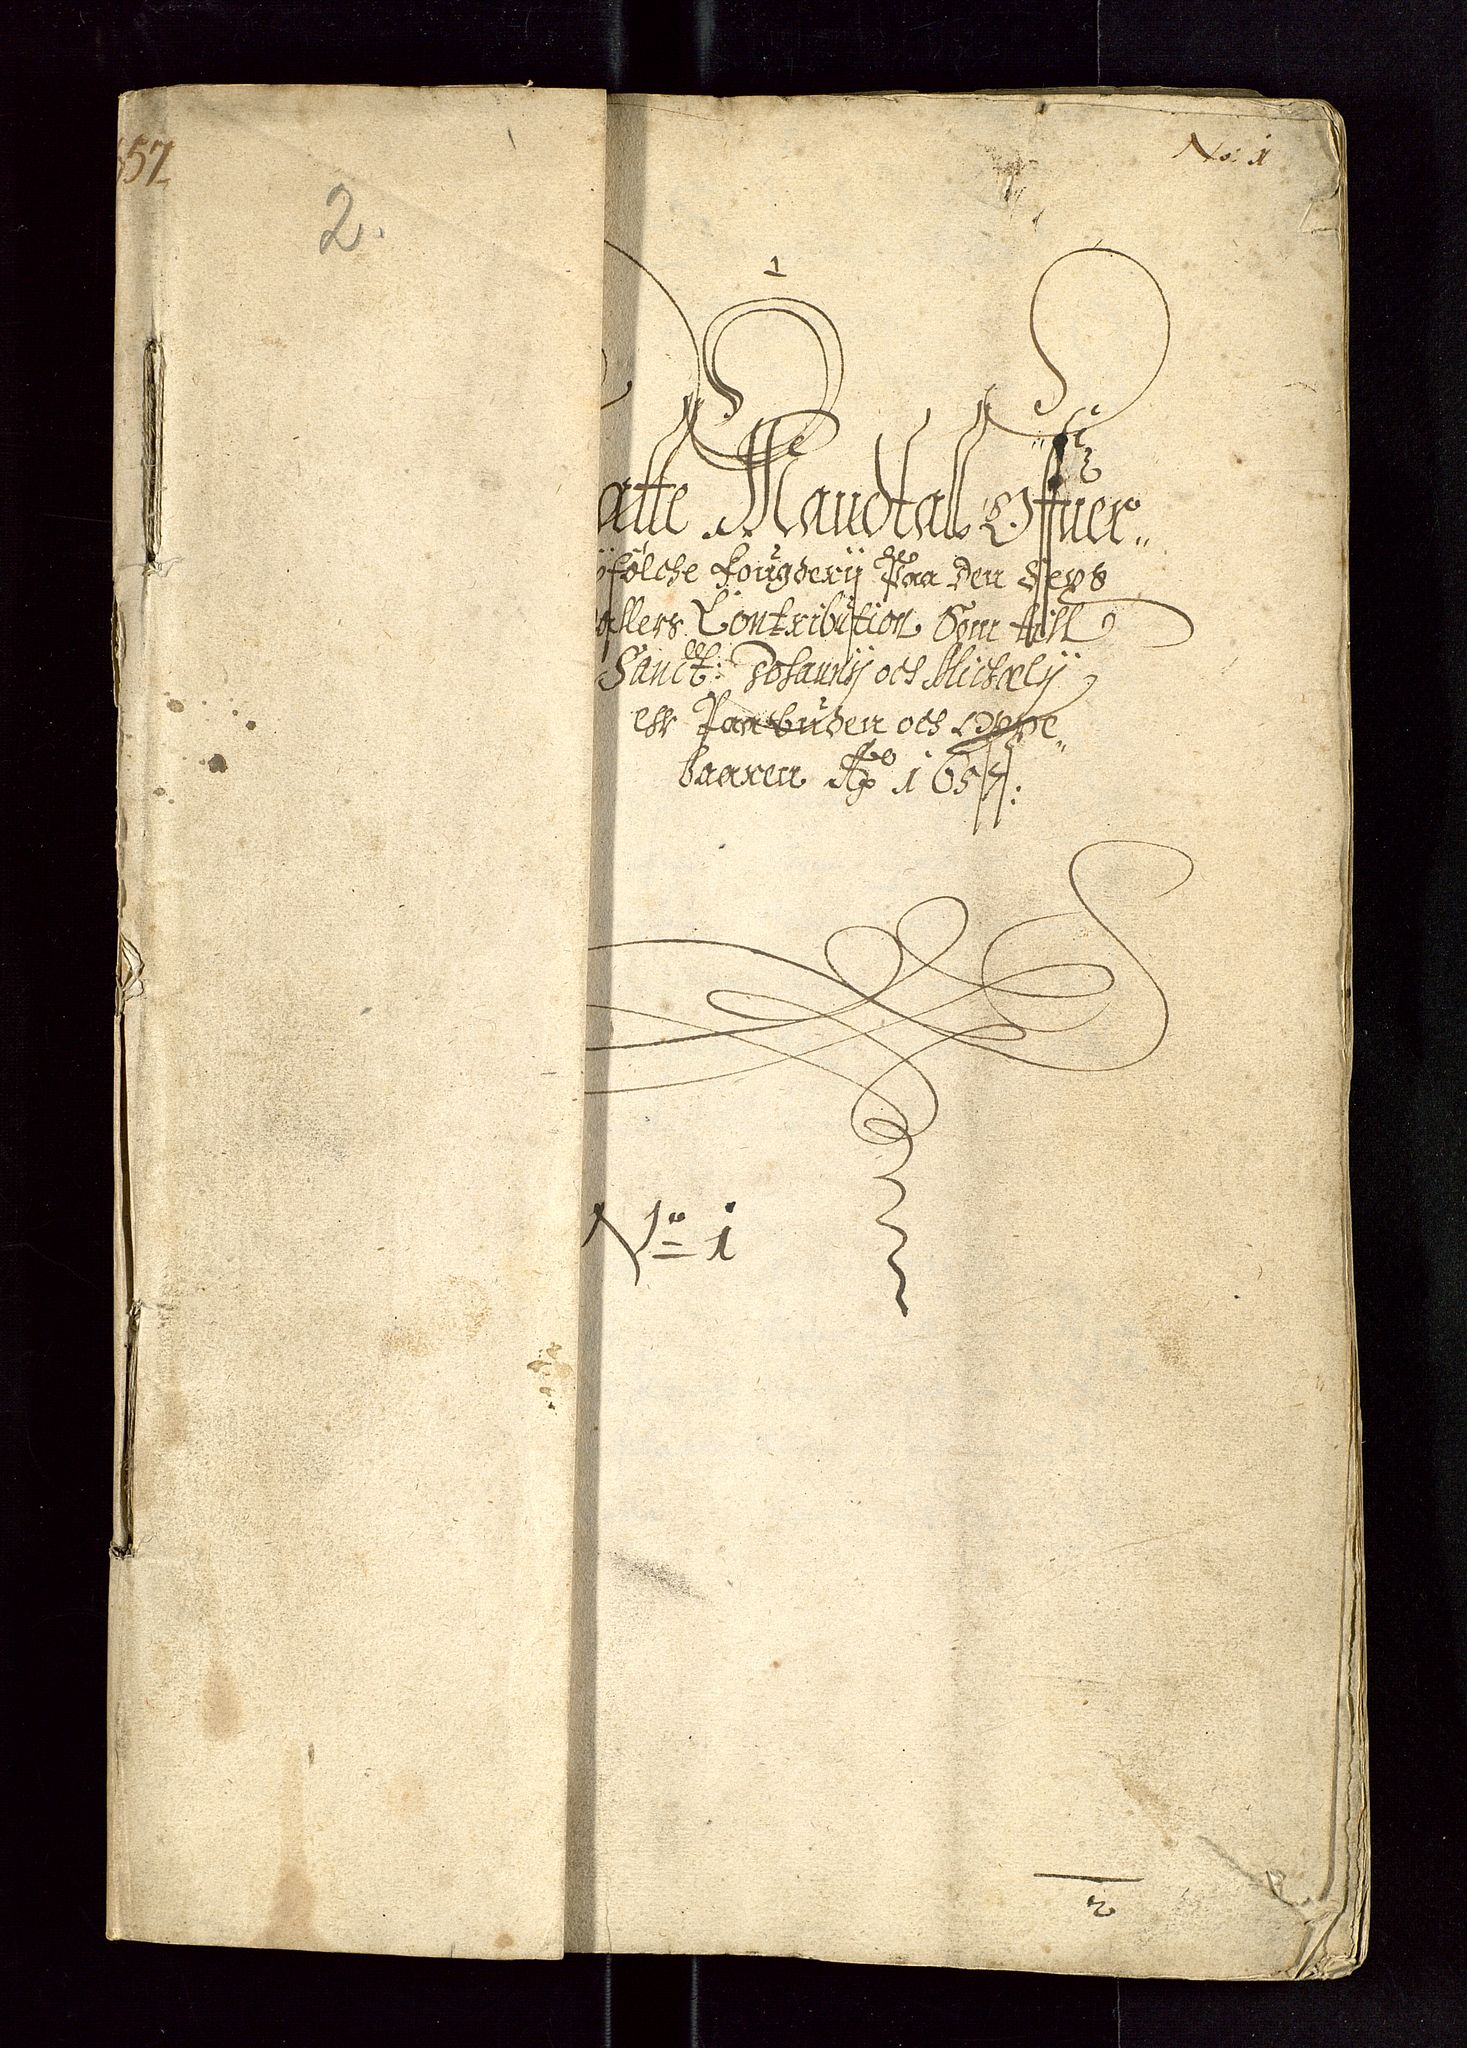 57
2.
No: 1
1
atte Mandtall Offuer„
ÿfølche fougderij Paa den Sexs
allers Contribution Som till
Sanct: Johannij och Michælij
er Paabuden och Oppe„
baaren Ao 1657:
No 1
2